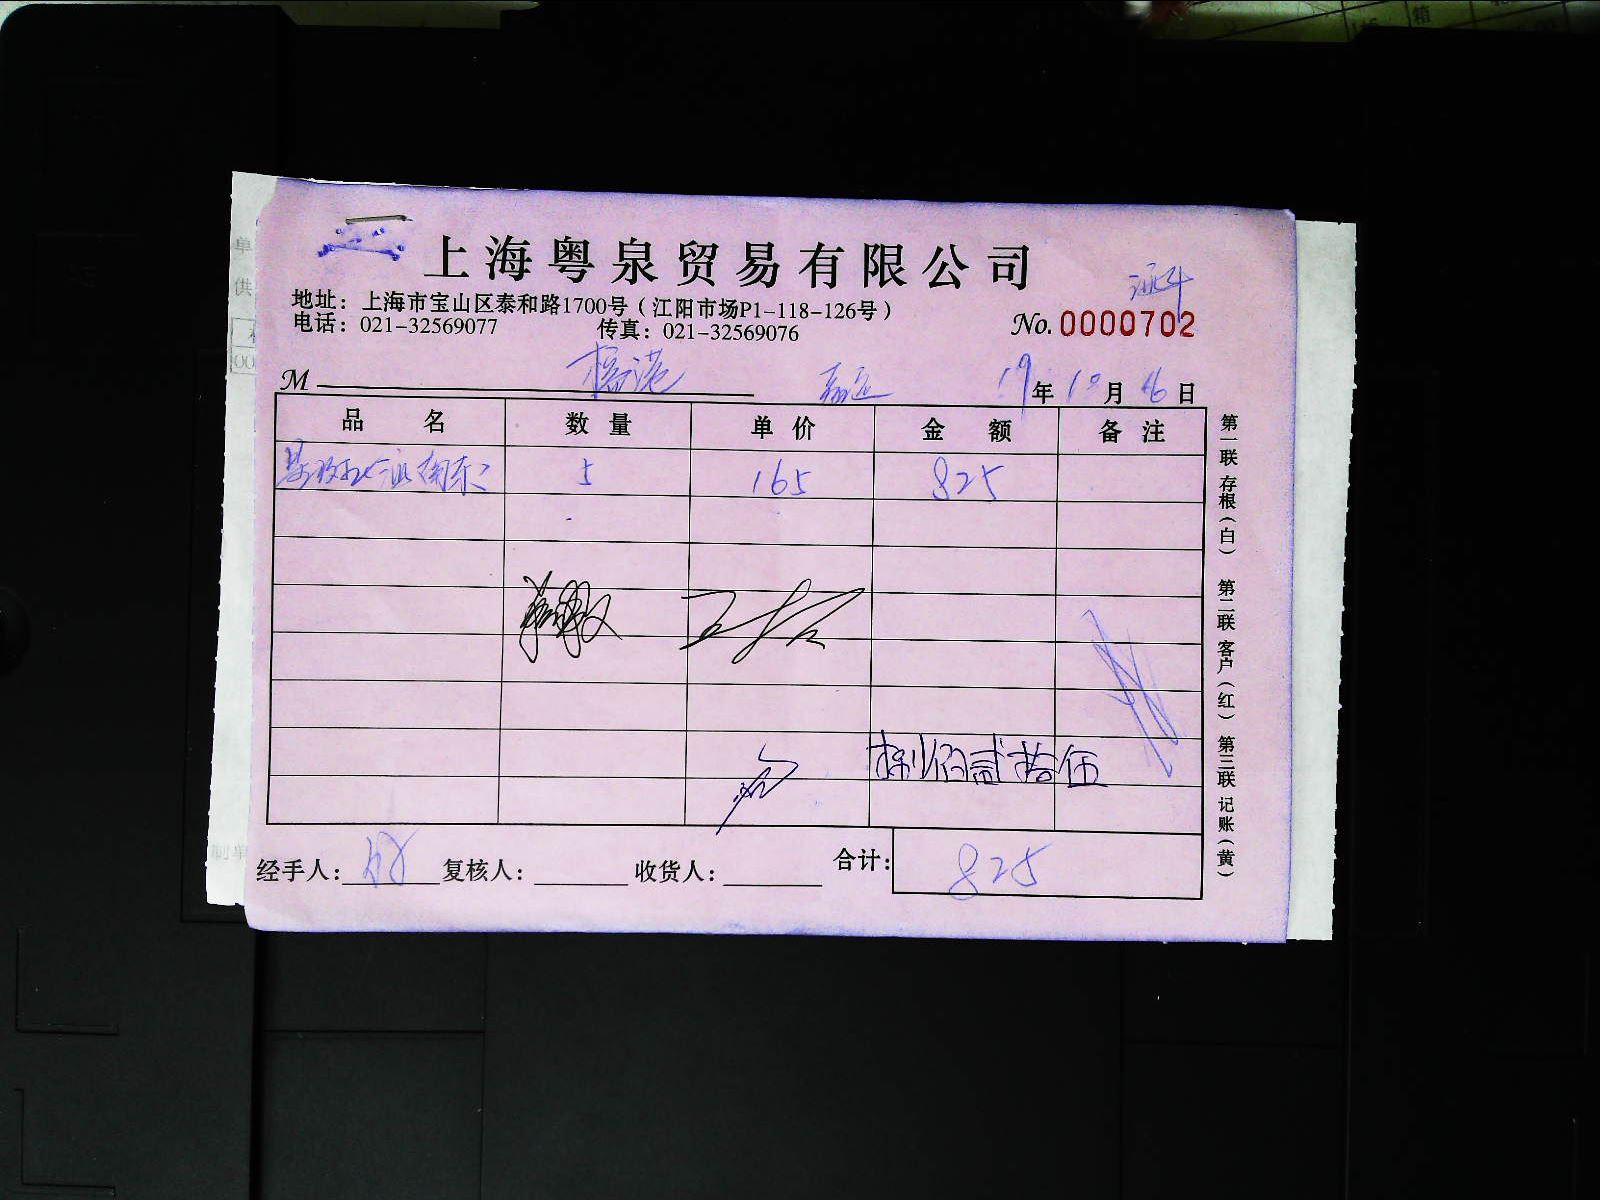 上海粤泉贸易有限公司
地址：上海市宝山区泰和路1700号（江阳市场P1-118-126号）
电话：021-32569077 传真：021-32569076 No. 0000702
M 年 月 日
品 名 数 量 单 价 金 额 备 注
5 165 825
捌佰贰拾伍
经手人： 复核人： 收货人： 合计： 825
第一联 存根（白） 第二联 客户（红） 第三联 记账（黄）